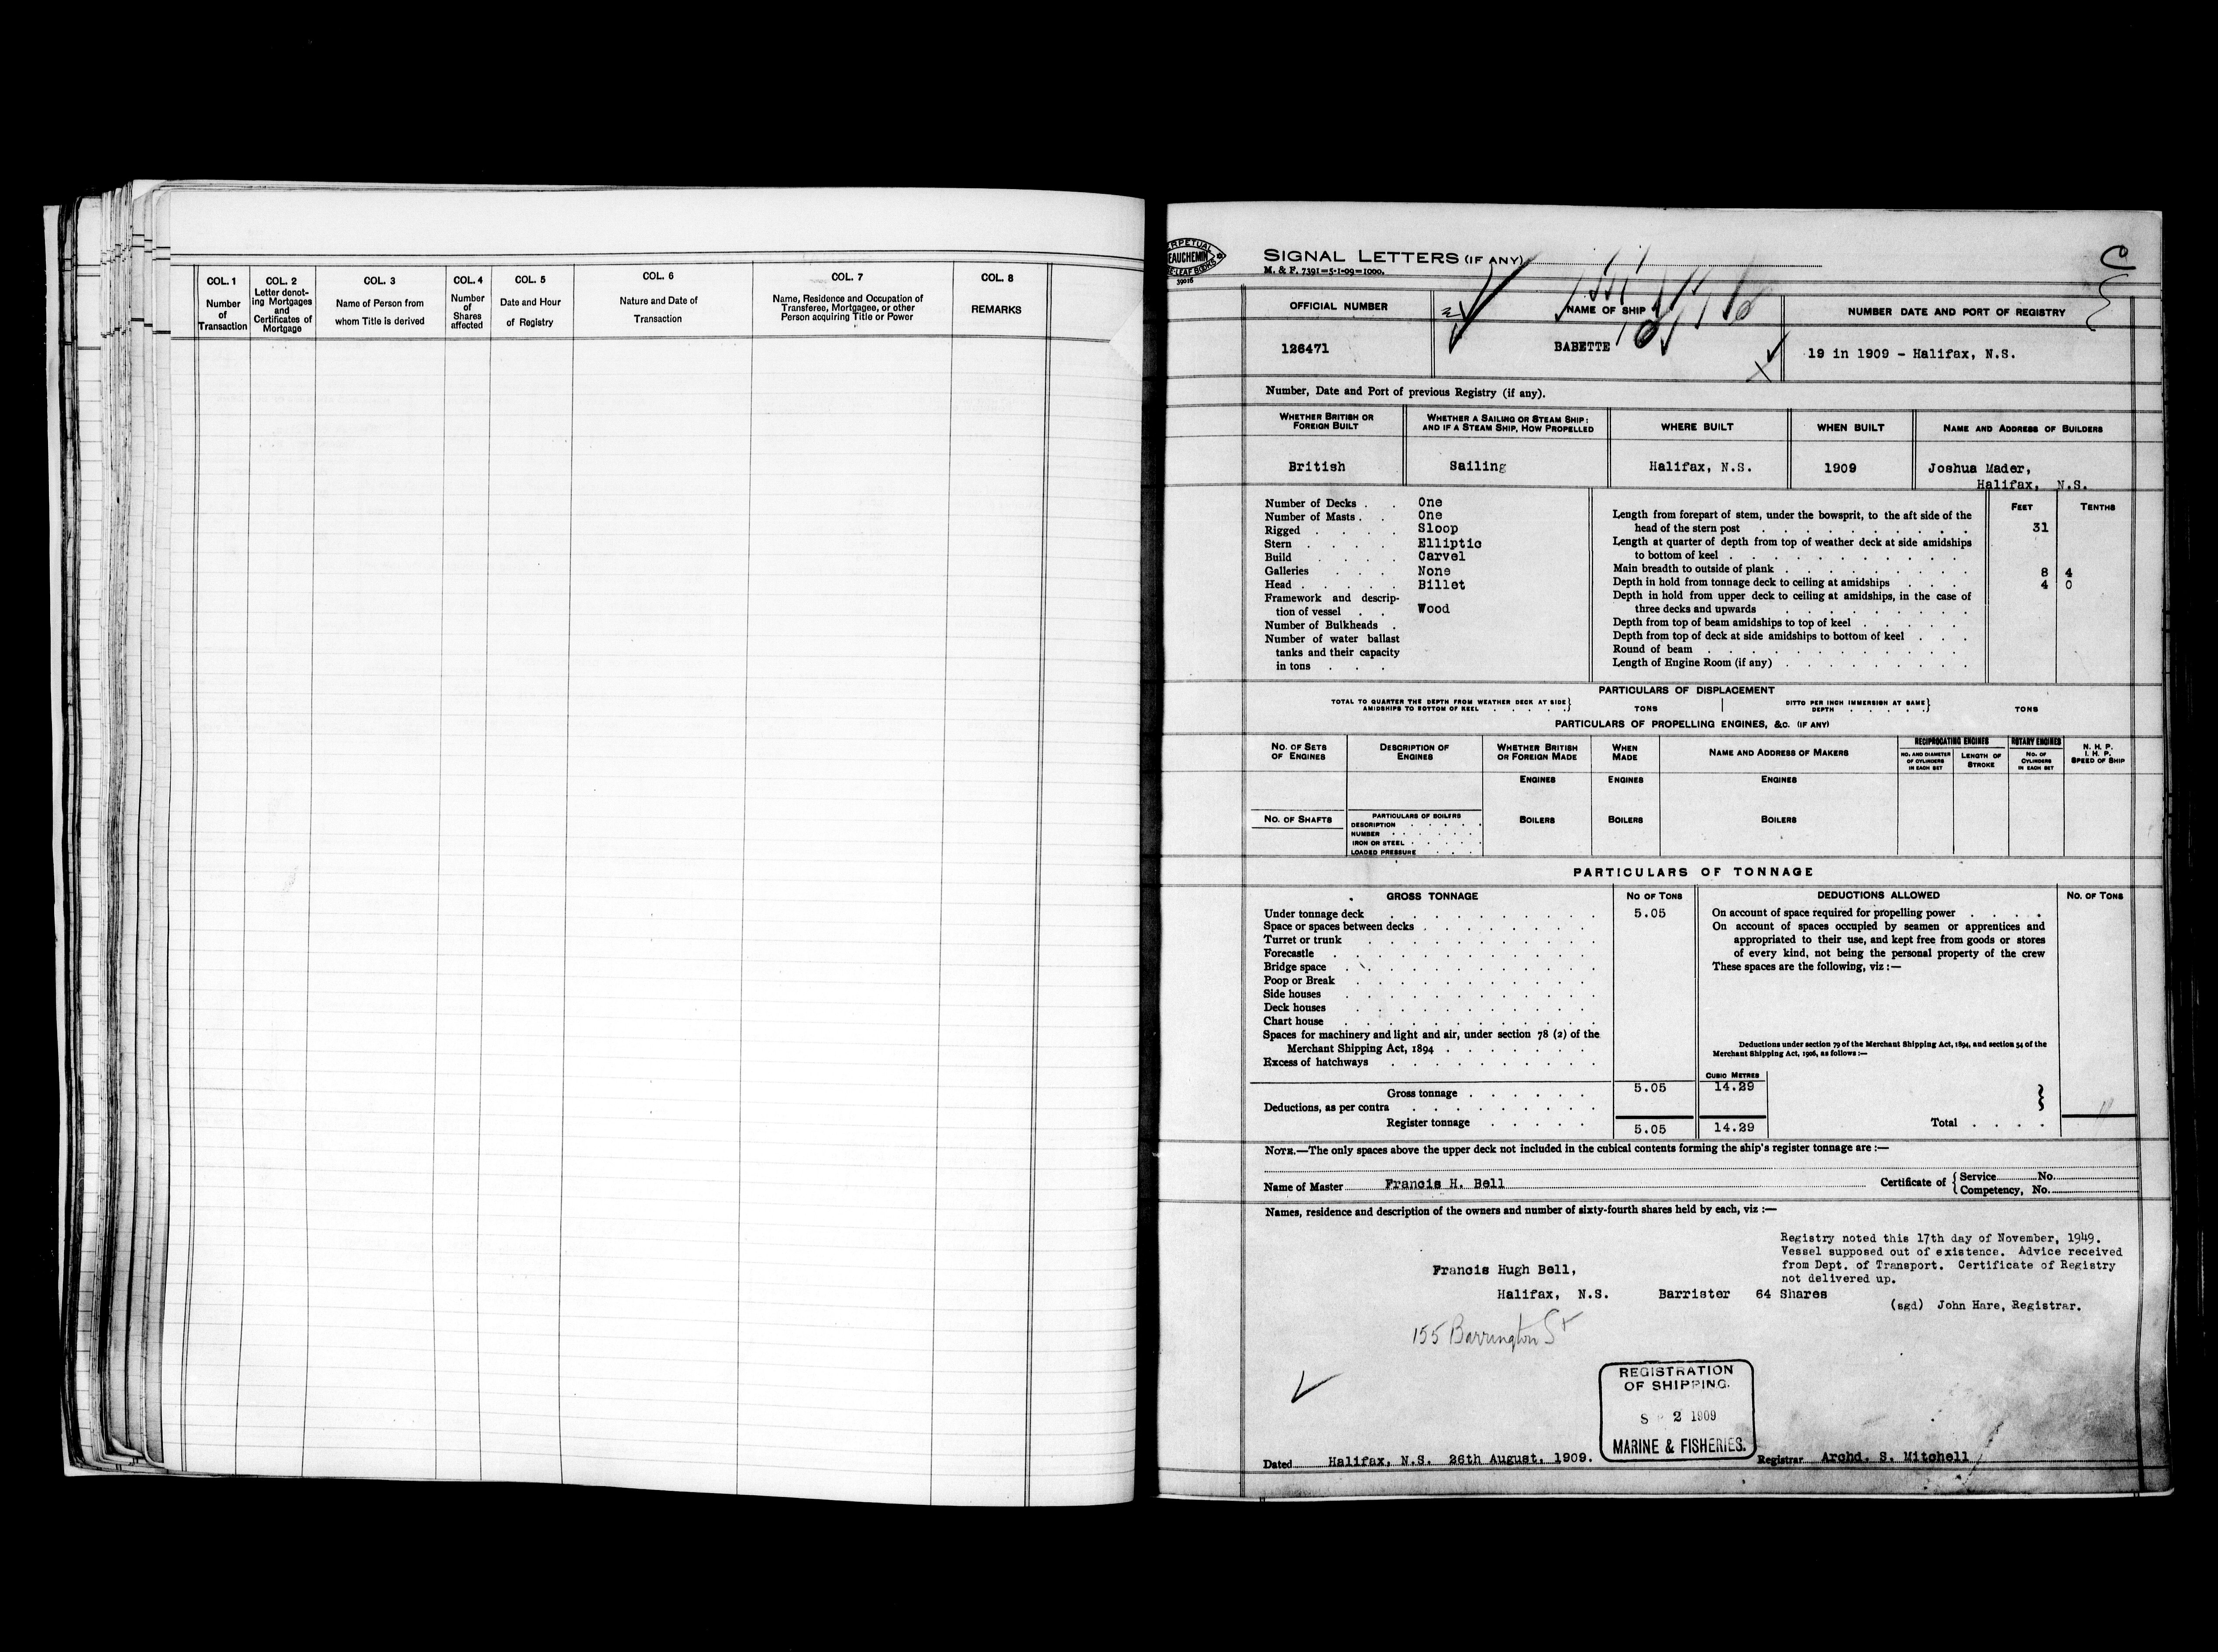 COL. 1
Number
of
Transaction
COL. 2
Letter denot-
ing Mortgages
and
Certificates of
Mortgage
COL. 3
Name of Person from
whom Title is derived
COL. 4
Number
of
Shares
affected
COL. 5
Date and Hour
of Registry
COL. 6
Nature and Date of
Transaction
COL. 7
Name, Residence and Occupation of
Transferee, Mortgagee, or other
Person acquiring Title or Power
COL. 8
REMARKS
SIGNAL LETTERS (IF ANY)
M. & F. 7391=5-1-09=1000.
39016
OFFICIAL NUMBER
NAME OF SHIP
NUMBER DATE AND PORT OF REGISTRY
126471
BABETTE
19 in 1909 - Halifax, N.S.
Number, Date and Port of previous Registry (if any).
WHETHER BRITISH OR
FOREIGN BUILT
WHETHER A SAILING OR STEAM SHIP:
AND IF A STEAM SHIP, HOW PROPELLED
WHERE BUILT
WHEN BUILT
NAME AND ADDRESS OF BUILDERS
British
Sailing
Halifax, N.S.
1909
Joshua Mader,
Halifax, N.S.
Number of Decks . . One
Number of Masts . . One
Rigged . . . . Sloop
Stern . . . . Elliptic
Build . . . . Carvel
Galleries . . . None
Head . . . . . Billet
Framework and descrip-
tion of vessel . . Wood
Number of Bulkheads .
Number of water ballast
tanks and their capacity
in tons . . .
FEET TENTHS
Length from forepart of stem, under the bowsprit, to the aft side of the
head of the stern post 31
Length at quarter of depth from top of weather deck at side amidships
to bottom of keel
Main breadth to outside of plank 8 4
Depth in hold from tonnage deck to ceiling at amidships 4 0
Depth in hold from upper deck to ceiling at amidships, in the case of
three decks and upwards
Depth from top of beam amidships to top of keel
Depth from top of deck at side amidships to bottom of keel
Round of beam
Length of Engine Room (if any)
PARTICULARS OF DISPLACEMENT
TOTAL TO QUARTER THE DEPTH FROM WEATHER DECK AT SIDE
AMIDSHIPS TO BOTTOM OF KEEL
TONS
DITTO PER INCH IMMERSION AT SAME
DEPTH
TONS
PARTICULARS OF PROPELLING ENGINES, &C. (IF ANY)
NO. OF SETS
OF ENGINES
DESCRIPTION OF
ENGINES
WHETHER BRITISH
OR FOREIGN MADE
WHEN
MADE
NAME AND ADDRESS OF MAKERS
RECIPROCATING ENGINES
NO. AND DIAMETER
OF CYLINDERS
IN EACH SET
LENGTH OF
STROKE
ROTARY ENGINES
NO. OF
CYLINDERS
IN EACH SET
N. H. P.
I. H. P.
SPEED OF SHIP
ENGINES
ENGINES
ENGINES
NO. OF SHAFTS
PARTICULARS OF BOILERS
DESCRIPTION
NUMBER
IRON OR STEEL
LOADED PRESSURE
BOILERS
BOILERS
BOILERS
PARTICULARS OF TONNAGE
GROSS TONNAGE
NO OF TONS
DEDUCTIONS ALLOWED
NO. OF TONS
Under tonnage deck 5.05
Space or spaces between decks
Turret or trunk
Forecastle
Bridge space
Poop or Break
Side houses
Deck houses
Chart house
Spaces for machinery and light and air, under section 78 (2) of the
Merchant Shipping Act, 1894
Excess of hatchways
On account of space required for propelling power
On account of spaces occupied by seamen or apprentices and
appropriated to their use, and kept free from goods or stores
of every kind, not being the personal property of the crew
These spaces are the following, viz :—
Deductions under section 79 of the Merchant Shipping Act, 1894, and section 54 of the
Merchant Shipping Act, 1906, as follows :—
CUBIC METRES
Gross tonnage 5.05 14.29
Deductions, as per contra
Register tonnage 5.05 14.29
Total
NOTE.—The only spaces above the upper deck not included in the cubical contents forming the ship's register tonnage are :—
Name of Master Francis H. Bell
Certificate of { Service No.
Competency, No.
Names, residence and description of the owners and number of sixty-fourth shares held by each, viz :—
Registry noted this 17th day of November, 1949.
Vessel supposed out of existence. Advice received
from Dept. of Transport. Certificate of Registry
not delivered up.
(sgd) John Hare, Registrar.
Francis Hugh Bell,
Halifax, N.S. Barrister 64 Shares
155 Barrington St
REGISTRATION
OF SHIPPING.
2 1909
MARINE & FISHERIES.
Dated Halifax, N.S. 26th August, 1909.
Registrar Archd. S. Mitchell